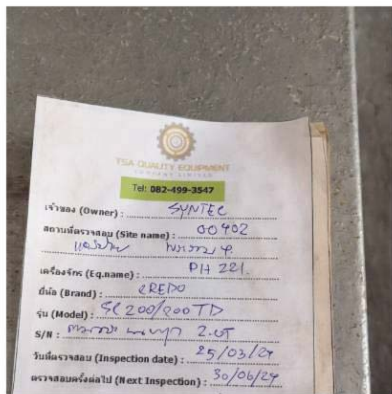 TSA QUALITY EQUIPMENT
COMPANY LIMITED
Tel: 082-499-3547
เจ้าของ (Owner) : SYNTEC
สถานที่ตรวจสอบ (Site name) : 00402
เครื่องจักร (Eq.name) : PH 221.
ยี่ห้อ (Brand) : CREDO
รุ่น (Model) : SC 200/200 TD
S/N :
วันที่ตรวจสอบ (Inspection date) : 25/03/24
ตรวจสอบครั้งต่อไป (Next Inspection) : 30/06/24